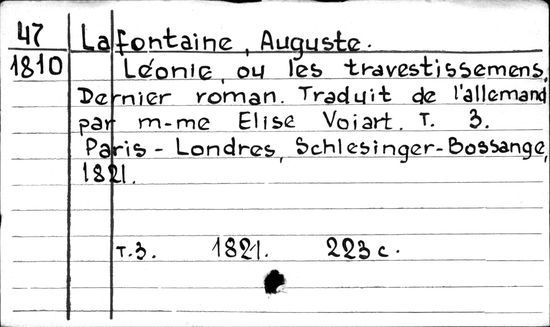 47 Lafontaine, Auguste.
1810 Léonie, ou les travestissemens,
Dernier roman. Traduit de l'allemand
par m-me Elise Voiart. T. 3.
Paris - Londres, Schlesinger-Bossange,
1821.
т.3. 1821. 223 с.